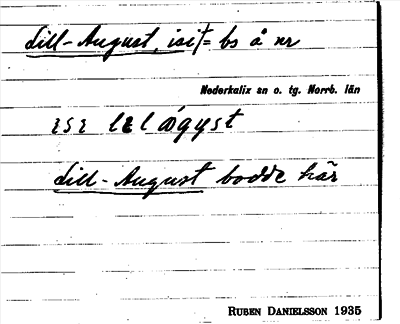 Lill-August, isit = bs å nr
Nederkalix sn o. tg. Norrb. län
Lill-August bodde här
RUBEN DANIELSSON 1935